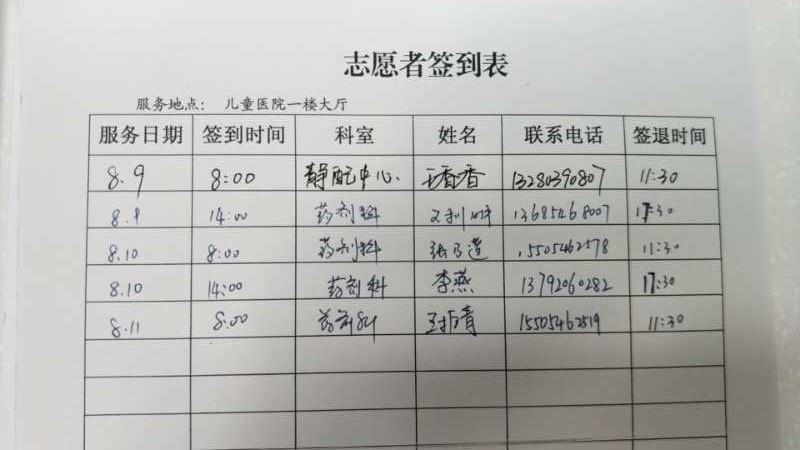 志愿者签到表
服务地点： 儿童医院一楼大厅
服务日期 签到时间 科室 姓名 联系电话 签退时间
8.9 8:00 静配中心 王香香 13280390807 11:30
8.9 14:00 药剂科 13685468007 17:30
8.10 8:00 药剂科 15505462578 11:30
8.10 14:00 药剂科 李燕 13792060282 17:30
8.11 8:00 药剂科 15505462519 11:30